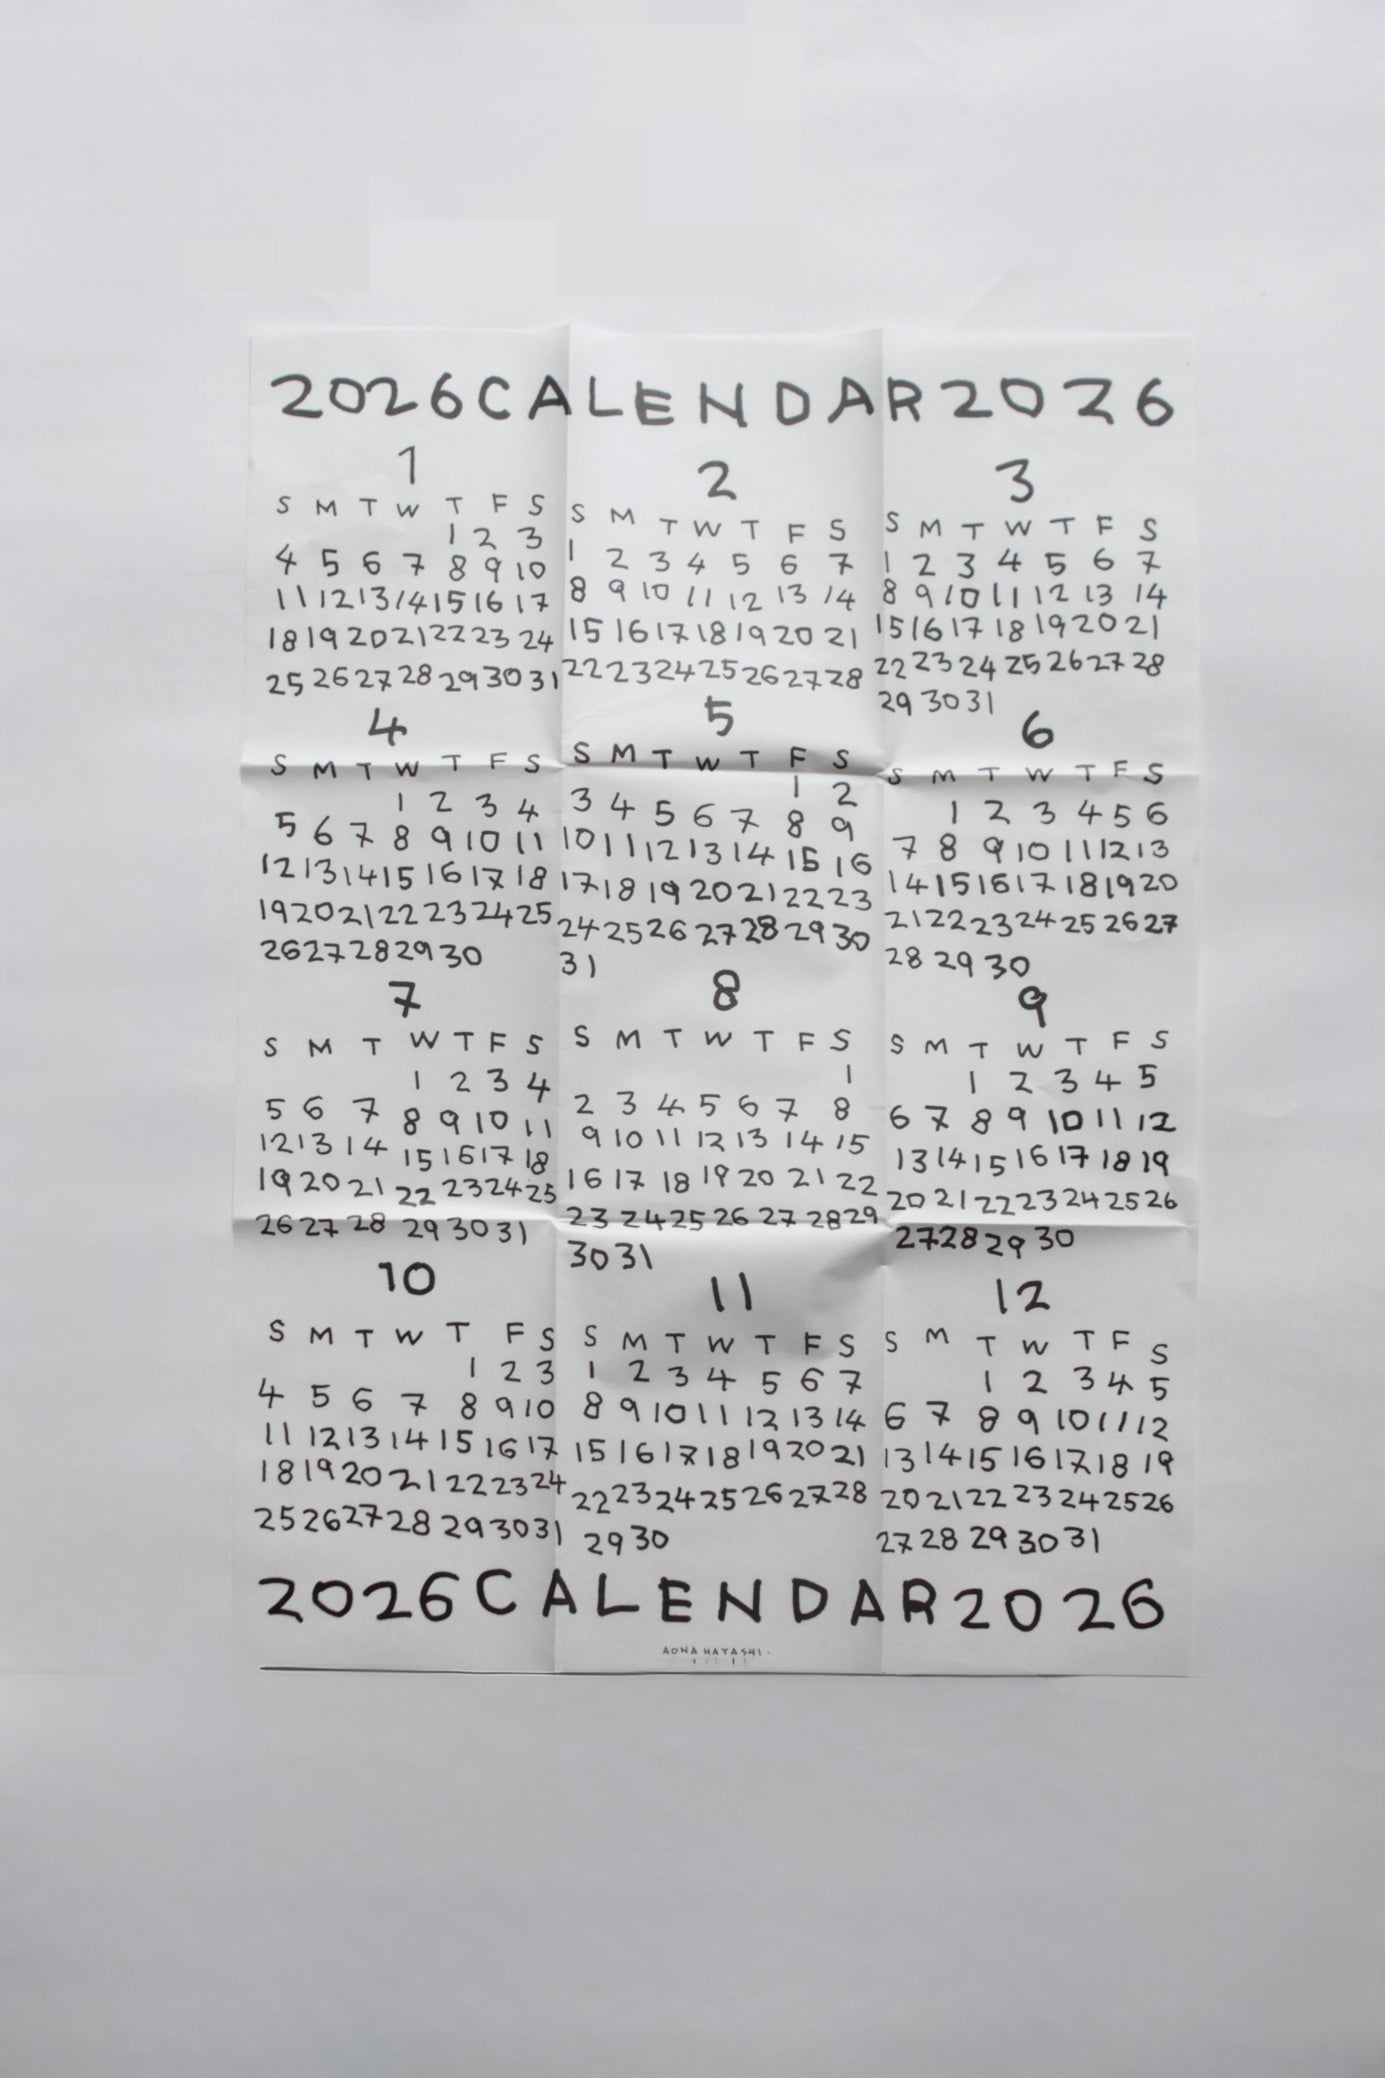 2026 CALENDAR 2026
1
S M T W T F S
1 2 3
4 5 6 7 8 9 10
11 12 13 14 15 16 17
18 19 20 21 22 23 24
25 26 27 28 29 30 31
2
S M T W T F S
1 2 3 4 5 6 7
8 9 10 11 12 13 14
15 16 17 18 19 20 21
22 23 24 25 26 27 28
3
S M T W T F S
1 2 3 4 5 6 7
8 9 10 11 12 13 14
15 16 17 18 19 20 21
22 23 24 25 26 27 28
29 30 31
4
S M T W T F S
1 2 3 4
5 6 7 8 9 10 11
12 13 14 15 16 17 18
19 20 21 22 23 24 25
26 27 28 29 30
5
S M T W T F S
1 2
3 4 5 6 7 8 9
10 11 12 13 14 15 16
17 18 19 20 21 22 23
24 25 26 27 28 29 30
31
6
S M T W T F S
1 2 3 4 5 6
7 8 9 10 11 12 13
14 15 16 17 18 19 20
21 22 23 24 25 26 27
28 29 30
7
S M T W T F S
1 2 3 4
5 6 7 8 9 10 11
12 13 14 15 16 17 18
19 20 21 22 23 24 25
26 27 28 29 30 31
8
S M T W T F S
1
2 3 4 5 6 7 8
9 10 11 12 13 14 15
16 17 18 19 20 21 22
23 24 25 26 27 28 29
30 31
9
S M T W T F S
1 2 3 4 5
6 7 8 9 10 11 12
13 14 15 16 17 18 19
20 21 22 23 24 25 26
27 28 29 30
10
S M T W T F S
1 2 3
4 5 6 7 8 9 10
11 12 13 14 15 16 17
18 19 20 21 22 23 24
25 26 27 28 29 30 31
11
S M T W T F S
1 2 3 4 5 6 7
8 9 10 11 12 13 14
15 16 17 18 19 20 21
22 23 24 25 26 27 28
29 30
12
S M T W T F S
1 2 3 4 5
6 7 8 9 10 11 12
13 14 15 16 17 18 19
20 21 22 23 24 25 26
27 28 29 30 31
2026 CALENDAR 2026
AONA HAYASHI.